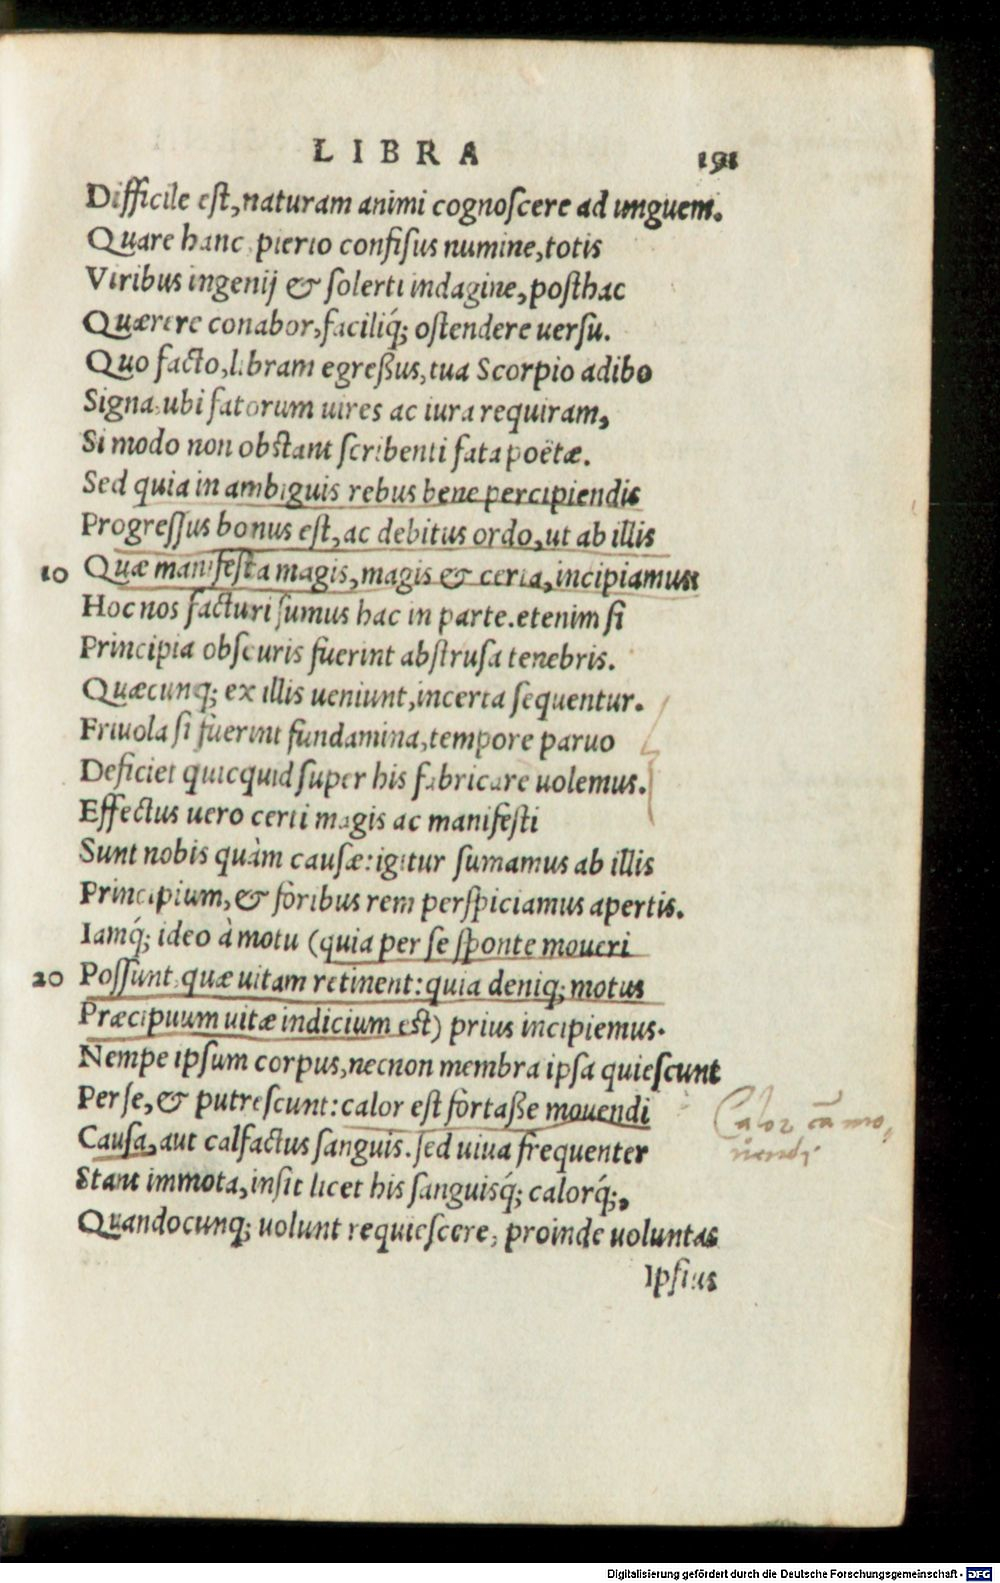 LIBRA 191
Difficile est, naturam animi cognoscere ad unguem.
Quare hanc pierio confisus numine, totis
Viribus ingenij & solerti indagine, posthac
Quærere conabor, faciliq́; ostendere uersu.
Quo facto, libram egreßus, tua Scorpio adibo
Signa, ubi fatorum uires ac iura requiram,
Si modo non obstant scribenti fata poëtæ.
Sed quia in ambiguis rebus bene percipiendis
Progressus bonus est, ac debitus ordo, ut ab illis
10 Quæ manifesta magis, magis & certa, incipiamus:
Hoc nos facturi sumus hac in parte. etenim si
Principia obscuris fuerint abstrusa tenebris.
Quæcunq; ex illis ueniunt, incerta sequentur.
Friuola si fuerint fundamina, tempore paruo
Deficiet quicquid super his fabricare uolemus.
Effectus uero certi magis ac manifesti
Sunt nobis quàm causæ: igitur sumamus ab illis
Principium, & foribus rem perspiciamus apertis.
Iamq́; ideo à motu (quia per se sponte moueri
20 Possunt, quæ uitam retinent: quia deniq; motus
Præcipuum uitæ indicium est) prius incipiemus.
Nempe ipsum corpus, necnon membra ipsa quiescunt
Per se, & putrescunt: calor est fortaße mouendi
Causa, aut calfactus sanguis. sed uiua frequenter
Stant immota, insit licet his sanguisq́; calorq́;,
Quandocunq; uolunt requiescere, proinde uoluntas
Ipsius
Calor cā mo,
uendi
Digitalisierung gefördert durch die Deutsche Forschungsgemeinschaft - DFG